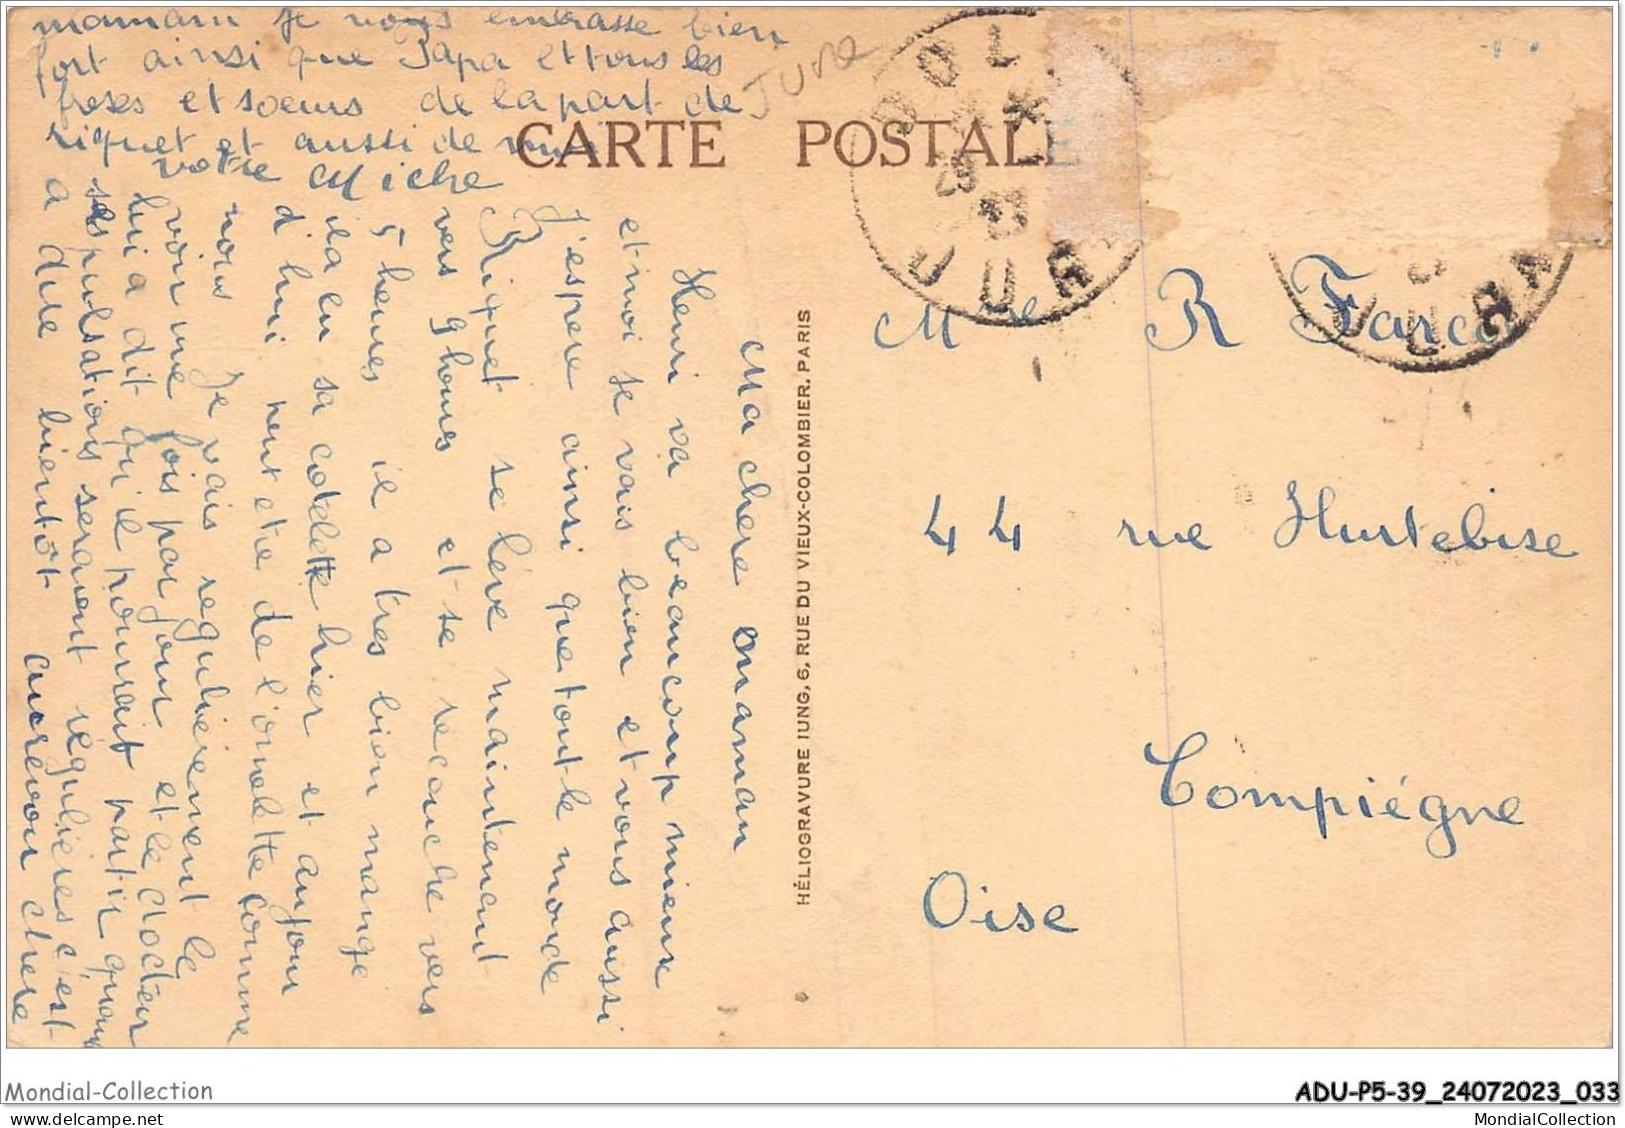 Ma chere maman
Henri va beaucoup mieux
et moi je vais bien et vous aussi
J'espere ainsi que tout le monde
Riquet se lève maintenent
vers 9 houres et se recouche vers
5 heures il a tres bien mange
il a lu sa cotelette hier et aujour
d'hui peut etre de l'omelette comme
nous Je vais regulièrement le
voir une fois par jour et le docteur
lui a dit qu'il pourrait partir quand
ses pulsations seraient régulières c'est
a dire bientôt aurevoir chere
maman je vous embrasse bien
fort ainsi que Papa et tous les
freres et soeurs de la part de
riquet et aussi de
votre Miche
Jura
CARTE POSTALE
DOL
JURA
HÉLIOGRAVURE IUNG, 6, RUE DU VIEUX-COLOMBIER. PARIS
Mme R Farco
44 rue Hurtebise
Compiégne
Oise
Mondial-Collection
ADU-P5-39_24072023_033
MondialCollection sur www.delcampe.net
MondialCollection